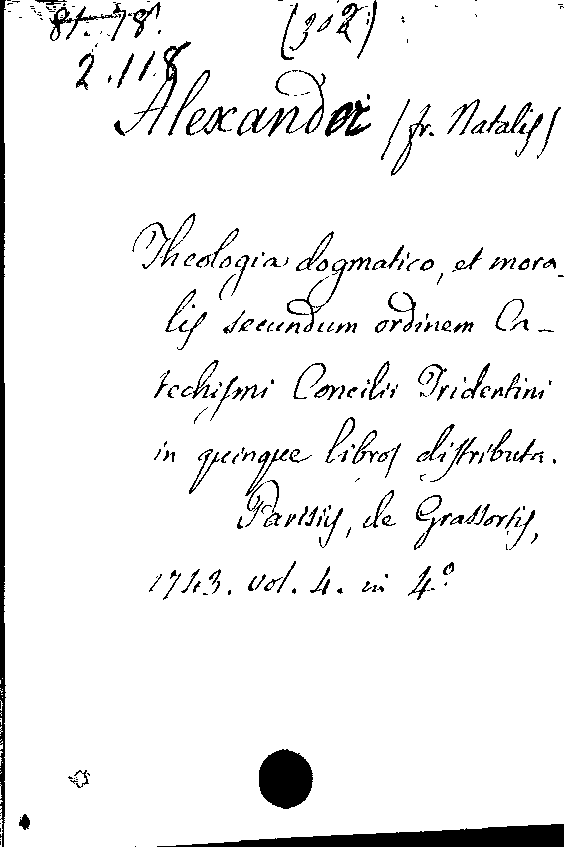 81. 78. (302)
2.118
Alexander (fr. Natalis)
Theologia dogmatico, et mora_
lis secundum ordinem Ca_
techismi Concilii Tridentini
in quinque libros distributa.
Parisiis, de Grassortis,
1743. vol. 4. in 4°